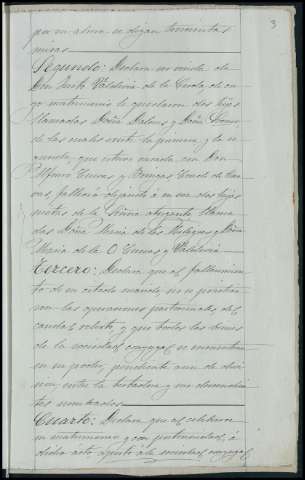 3
por su alma se digan treinta
misas
Segundo: Declara ser viuda de
Don Justo Valdivia de la Cerda, de cu-
yo matrimonio le quedaron dos hijas
llamadas Doña Dolores y Doña
de las cuales la primera y la se-
gunda, que estuvo casada con Don
Alfonso Cuevas y
falleció dejando a su vez dos hijas
nietas de la Señora otorgante llama-
das Doña María de los Milagros y Doña
María de la O Cuevas y Valdivia
Tercero: Declara que al fallecimien-
to de su citado marido, no se practica-
ron las operaciones particionales del
caudal relicto, y que todos los bienes
de la sociedad conyugal se encuentran
en su poder, pendiente aun de divi-
sion entre la testadora y sus descendien-
tes nombrados
Cuarto: Declara que al celebrar
su matrimonio y con posterioridad á
dicho acto aportó á la sociedad conyugal